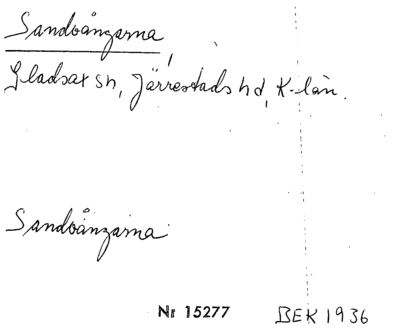 Sandvångarna,
Gladsax sn, Järrestads hd, K-län.
Sandvångarna
Nr 15277 BEK 1936